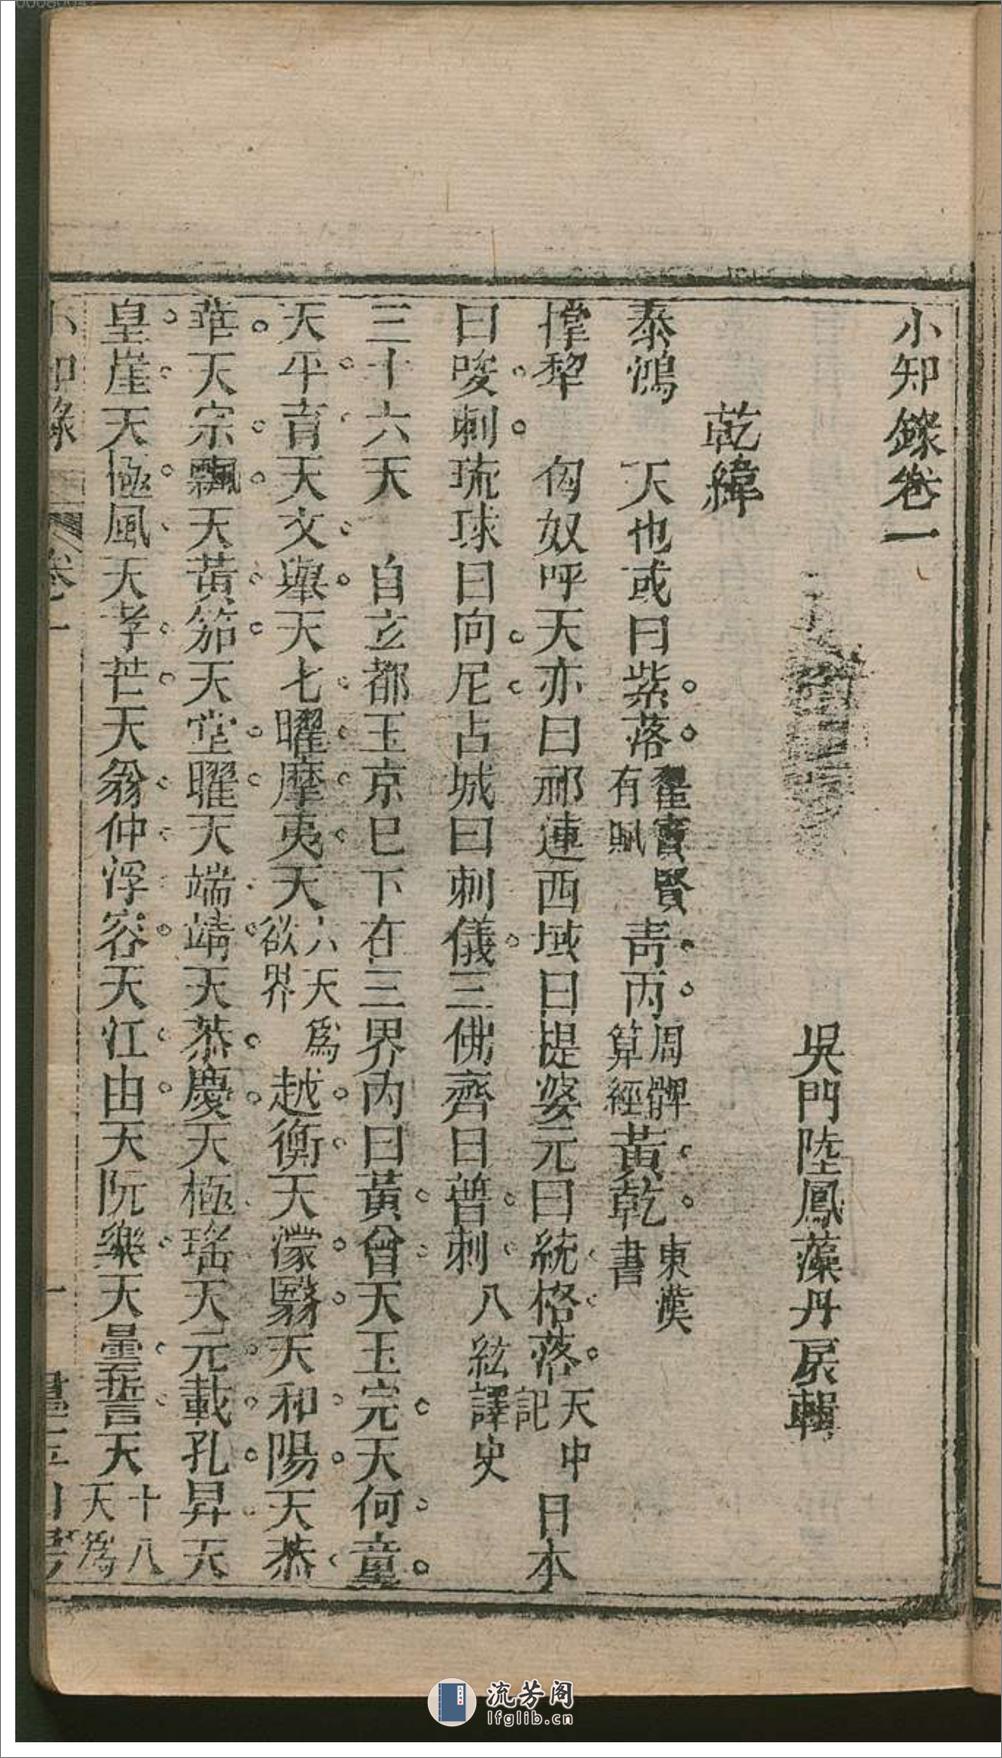 小知錄卷一
吳門陸鳳藻丹扆輯
乾緯
泰鴻 天也或曰紫落翟寶賢有賦青丙周髀算經黃乾東漢書
撐犂 匈奴呼天亦曰祁連西域曰提婆元曰統格落天中記日本
曰唆刺琉球曰向尼占城曰刺儀三佛齊曰普刺八紘譯史
三十六天 自玄都玉京已下在三界内曰黃曾天玉完天何童
天平育天文舉天七曜摩夷天六天爲欲界越衡天濛翳天和陽天恭
華天宗飄天黃笳天堂曜天端靖天恭慶天極瑤天元載孔昇天
皇崖天極風天孝芒天翁仲浮容天江由天阮樂天曇誓天十八天爲
小知錄 卷一 一
流芳阁
lfglib.cn